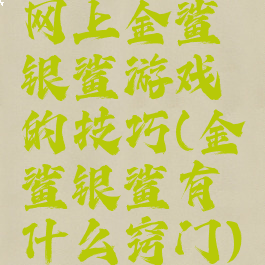 网上金鲨
银鲨游戏
的技巧(金
鲨银鲨有
什么窍门)